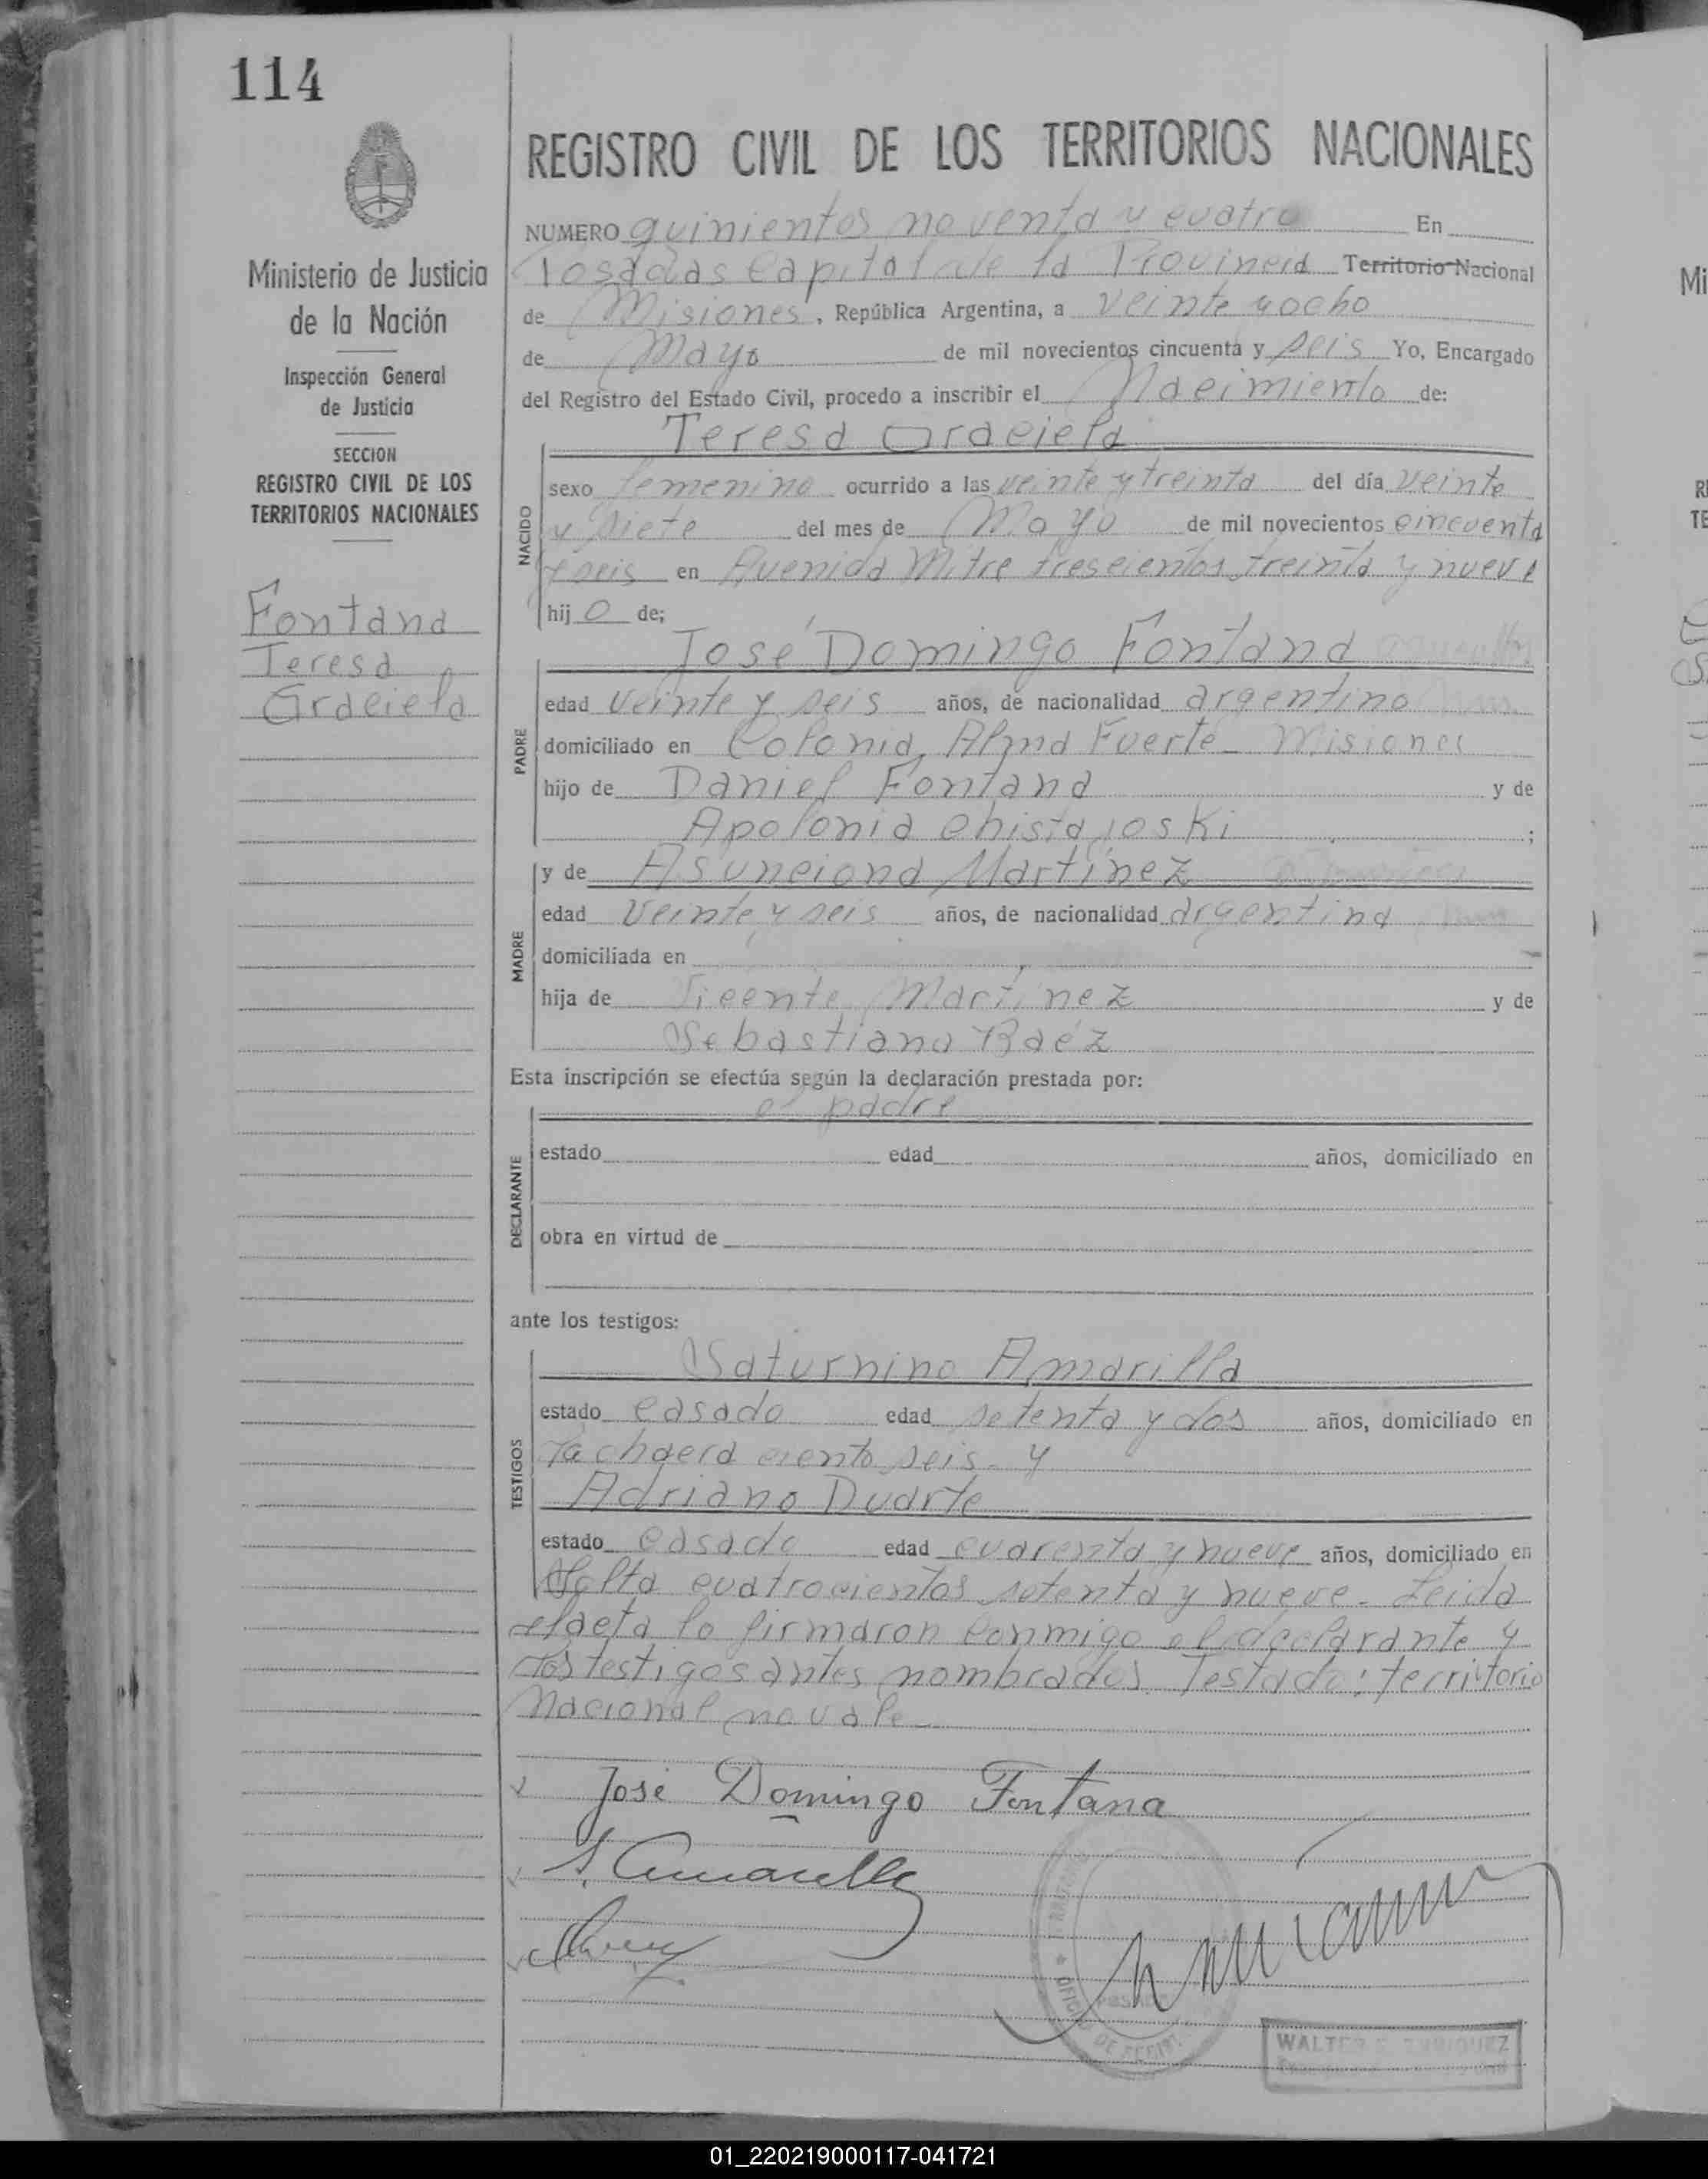 114
REGISTRO CIVIL DE LOS TERRITORIOS NACIONALES
Ministerio de Justicia
de la Nación
Inspección General
de Justicia
SECCION
REGISTRO CIVIL DE LOS
TERRITORIOS NACIONALES
Fontana
Teresa
Graciela
NUMERO quinientos noventa y cuatro En
Posadas Capital de la Provincia Territorio Nacional
de Misiones, República Argentina, a veinte y ocho
de Mayo de mil novecientos cincuenta y seis Yo, Encargado
del Registro del Estado Civil, procedo a inscribir el Nacimiento de:
Teresa Graciela
NACIDO
sexo femenino ocurrido a las veinte y treinta del día veinte
y siete del mes de Mayo de mil novecientos cincuenta
y seis en Avenida Mitre trescientos treinta y nueve
hij o de;
José Domingo Fontana
PADRE
edad veinte y seis años, de nacionalidad argentino
domiciliado en Colonia Alma Fuerte - Misiones
hijo de Daniel Fontana y de
Apolonia ;
y de Asunciona Martínez
MADRE
edad veinte y seis años, de nacionalidad argentina
domiciliada en
hija de Vicente Martínez y de
Sebastiana Baéz
Esta inscripción se efectúa según la declaración prestada por:
el padre
DECLARANTE
estado edad años, domiciliado en
obra en virtud de
ante los testigos:
Saturnino Amarilla
TESTIGOS
estado casado edad setenta y dos años, domiciliado en
la chacra ciento seis - y
Adriano Duarte
estado casado edad cuarenta y nueve años, domiciliado en
Salta cuatrocientos setenta y nueve - Leida
el acta lo firmaron conmigo el declarante y
los testigos antes nombrados. Testado: territorio
Nacional no vale -
José Domingo Fontana
S. Amarilla
OFICI DE
WALTER E. ENRIQUEZ
01_220219000117-041721